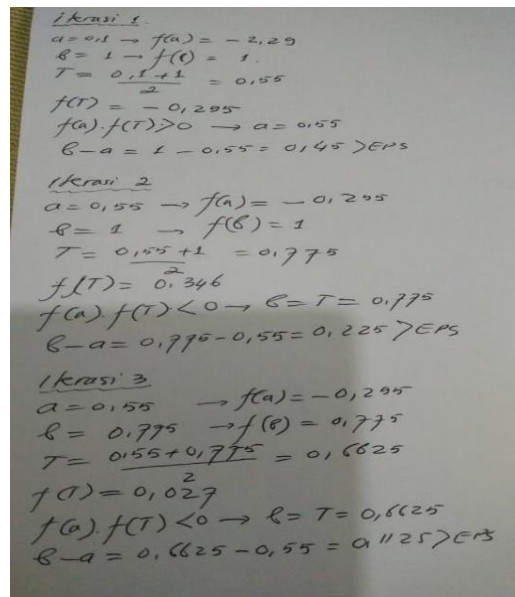 iterasi 1.
a = 0,1 → f(a) = - 2,29
b = 1 → f(b) = 1.
T = 0,1 + 1 / 2 = 0.55
f(T) = - 0,295
f(a).f(T) > 0 → a = 0.55
b - a = 1 - 0.55 = 0,45 > EPS
Iterasi 2
a = 0,55 → f(a) = - 0,295
b = 1 → f(b) = 1
T = 0,55 + 1 / 2 = 0,775
f(T) = 0.346
f(a).f(T) < 0 → b = T = 0,775
b - a = 0,775 - 0,55 = 0.225 > EPS
Iterasi 3
a = 0,55 → f(a) = - 0,295
b = 0.775 → f(b) = 0,775
T = 0.55 + 0,775 / 2 = 0,6625
f(T) = 0,027
f(a).f(T) < 0 → b = T = 0,6625
b - a = 0.6625 - 0,55 = 0,1125 > EPS